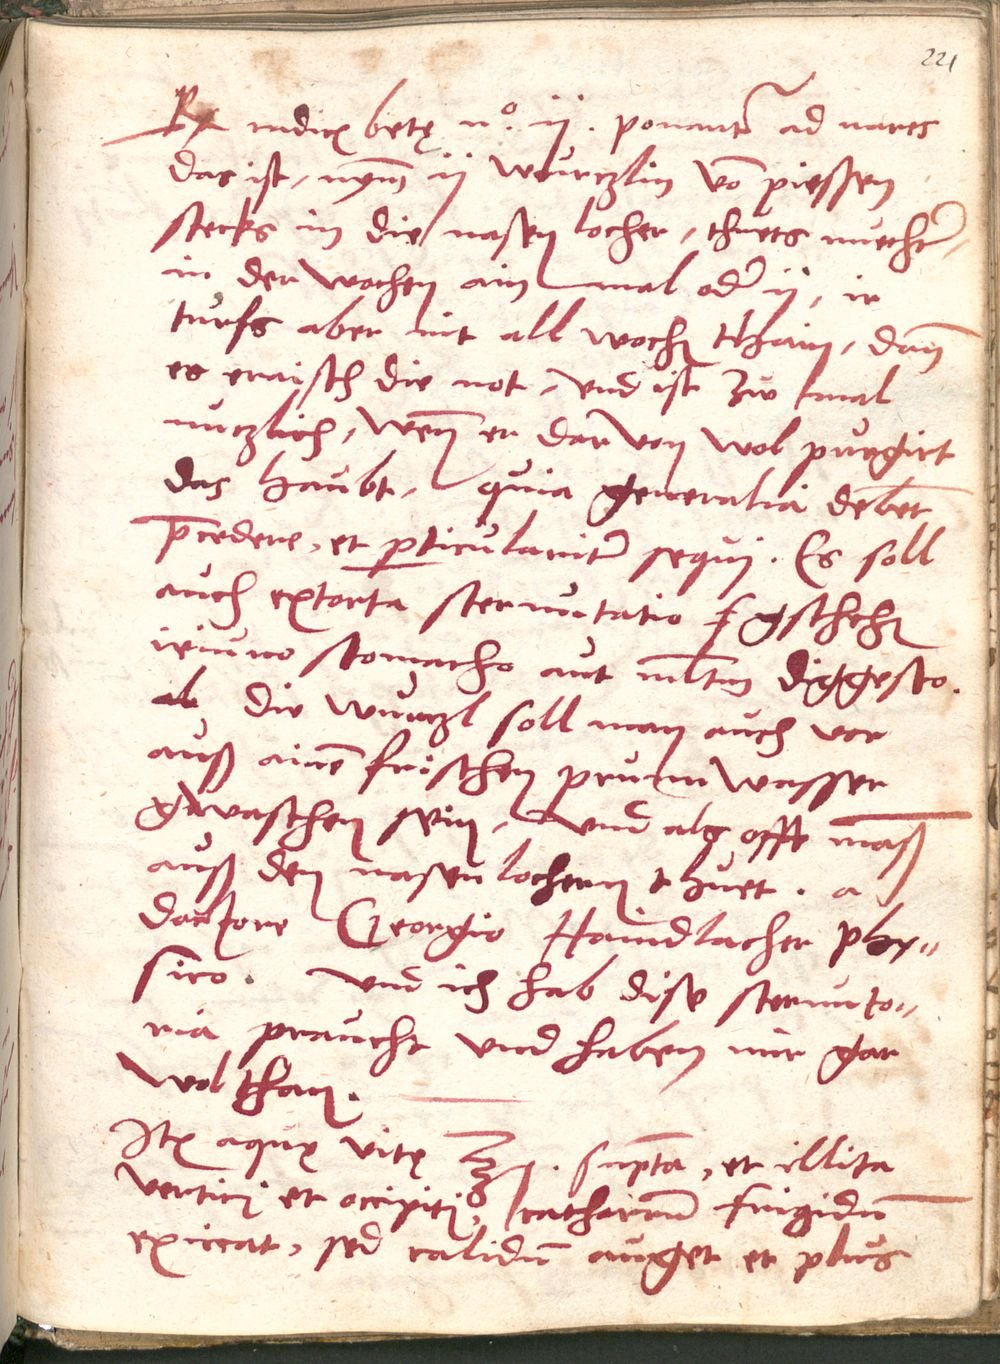 221
Rx radicē betę n.o ij. ponantr ad nares
das ist, nym̅ ij wurczlin vō piessen
stecks in die nasen locher, thuets nuechtr,
in der wochen ain mal odr ij, ir
turfs aber nit all woch thain, dan̅
es eraisch die not, vnd ist zw mal
nuczlich, wen̅ er dar von wol purgirt
das haubt, quia generalia debēt
p̄cedere, et ꝑticularitr sequj. Es soll
auch extorta sternutatio gschehn
ieiuno stomacho aut m̅ltm̅ diggesto.
die wurczl soll man auch vor
auß ainē frischen prunn wasser
gwaschen sein, vnd als offt mans
auß den nasen lochern thuet. a
doctore Georgio Haindlacher phy„
sico. vnd ich hab dise sternuto„
ria praucht vnd haben mir gar
wol than.
Itē aquę vitę ℥ j. supta, et illita
verticj et occipitij, catharrū frigidū
exiccat, sed calidū auget et plus